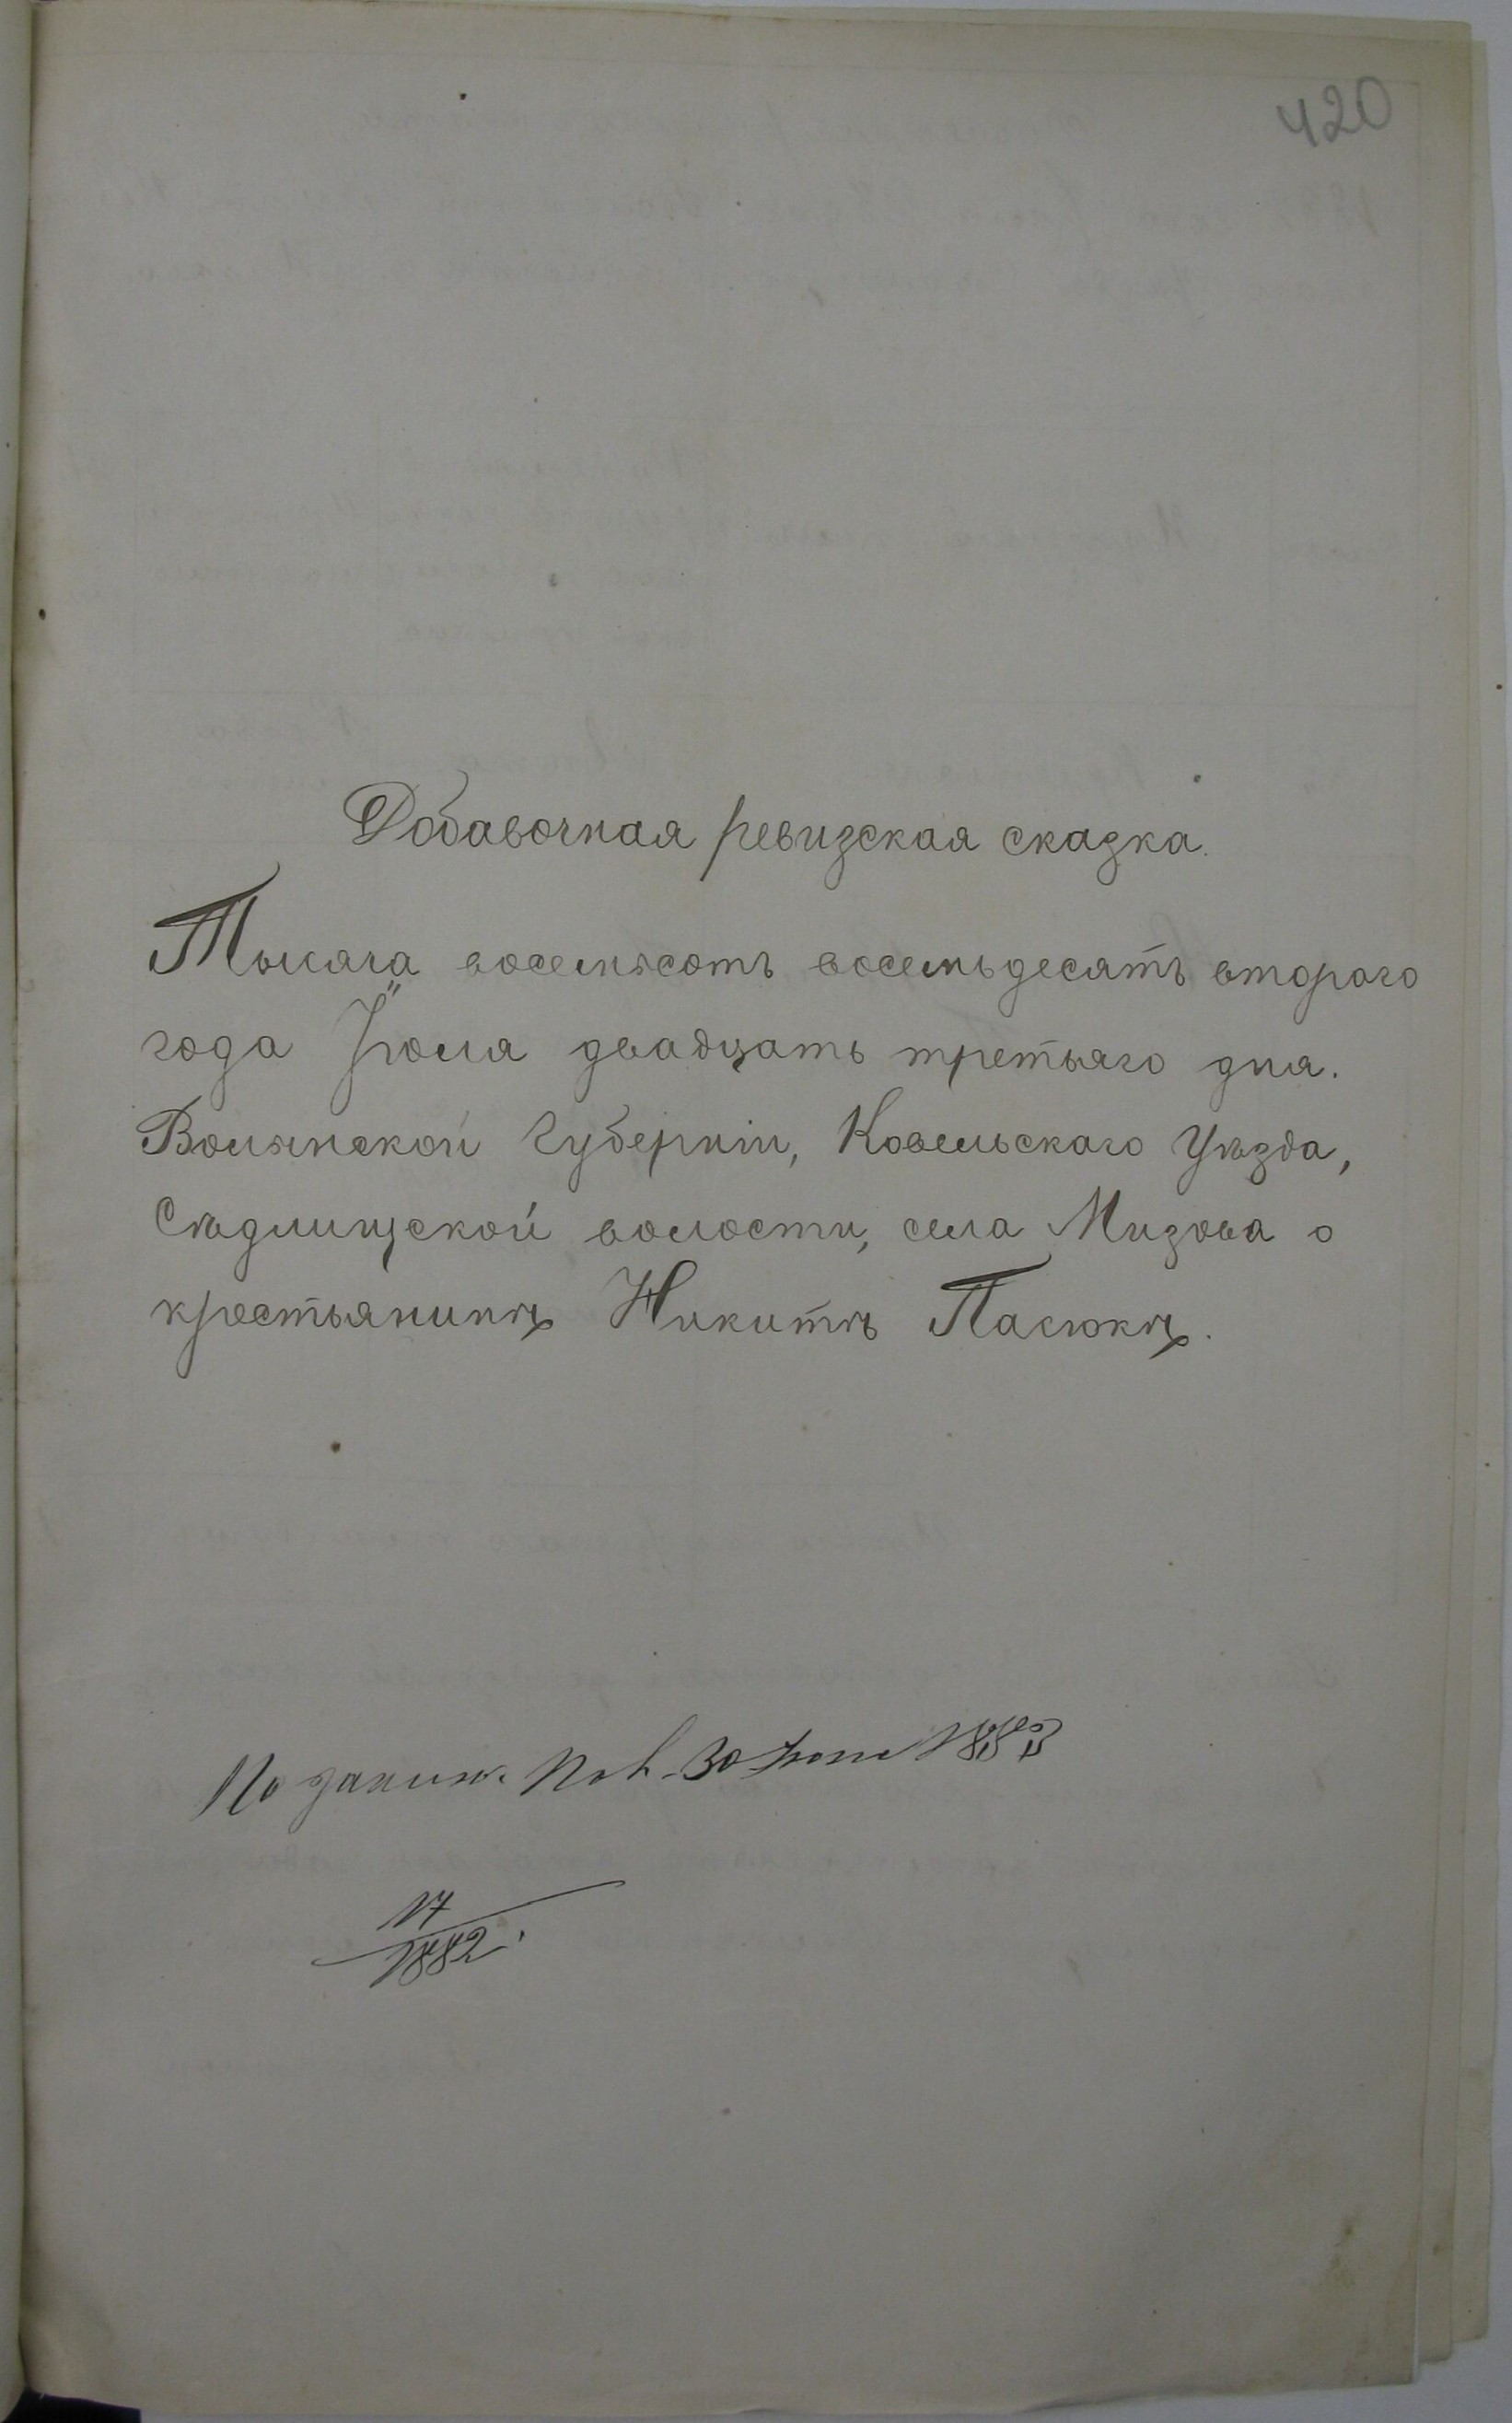 420
Добавочная ревизская сказка.
Тысяча восемьсотъ восемьдесятъ второго
года Іюля двадцать третьяго дня.
Волынской Губерніи, Ковельскаго Уѣзда,
Сѣдлищской волости, села Мизова о
крестьянинѣ Никитѣ Пасюкѣ.
По 30 1883
17
1882